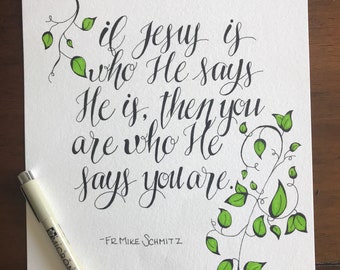 if Jesus is
who He says
He is, then you
are who He
says you are.
-Fr Mike Schmitz